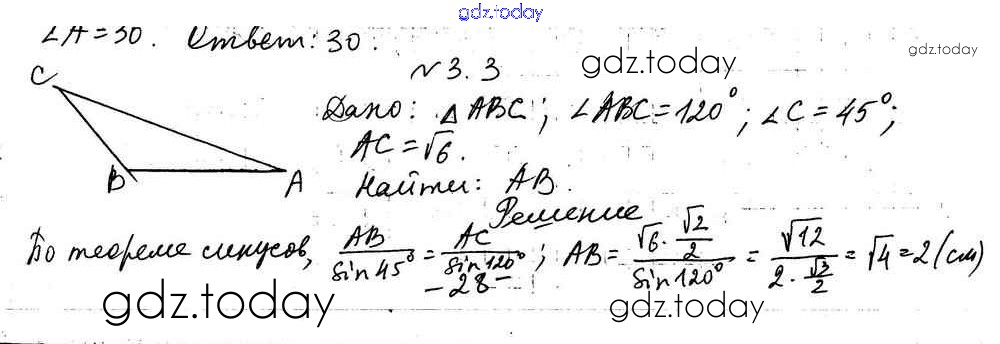 gdz.today
∠A = 30. Ответ: 30.
gdz.today
N 3.3
gdz.today
C
B
A
Дано: △ABC; ∠ABC = 120°; ∠C = 45°;
AC = √6.
Найти: AB.
Решение
По теореме синусов, AB/sin 45° = AC/sin 120°; AB = (√6 · √2/2)/sin 120° = √12/(2 · √3/2) = √4 = 2 (см)
- 28 -
gdz.today
gdz.today